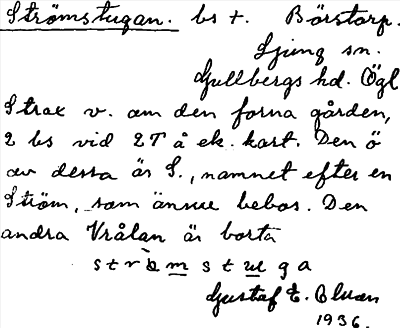 Strömstugan. bs t. Börstorp.
Ljung sn.
Gullbergs hd. Ögl
Strax v. om den forna gården,
2 bs vid 2T å ek. kart. Den ö
av dessa är S., namnet efter en
Ström, som ännu bebos. Den
andra Vrålan är borta
strömstuga
Gustaf E.
1936.